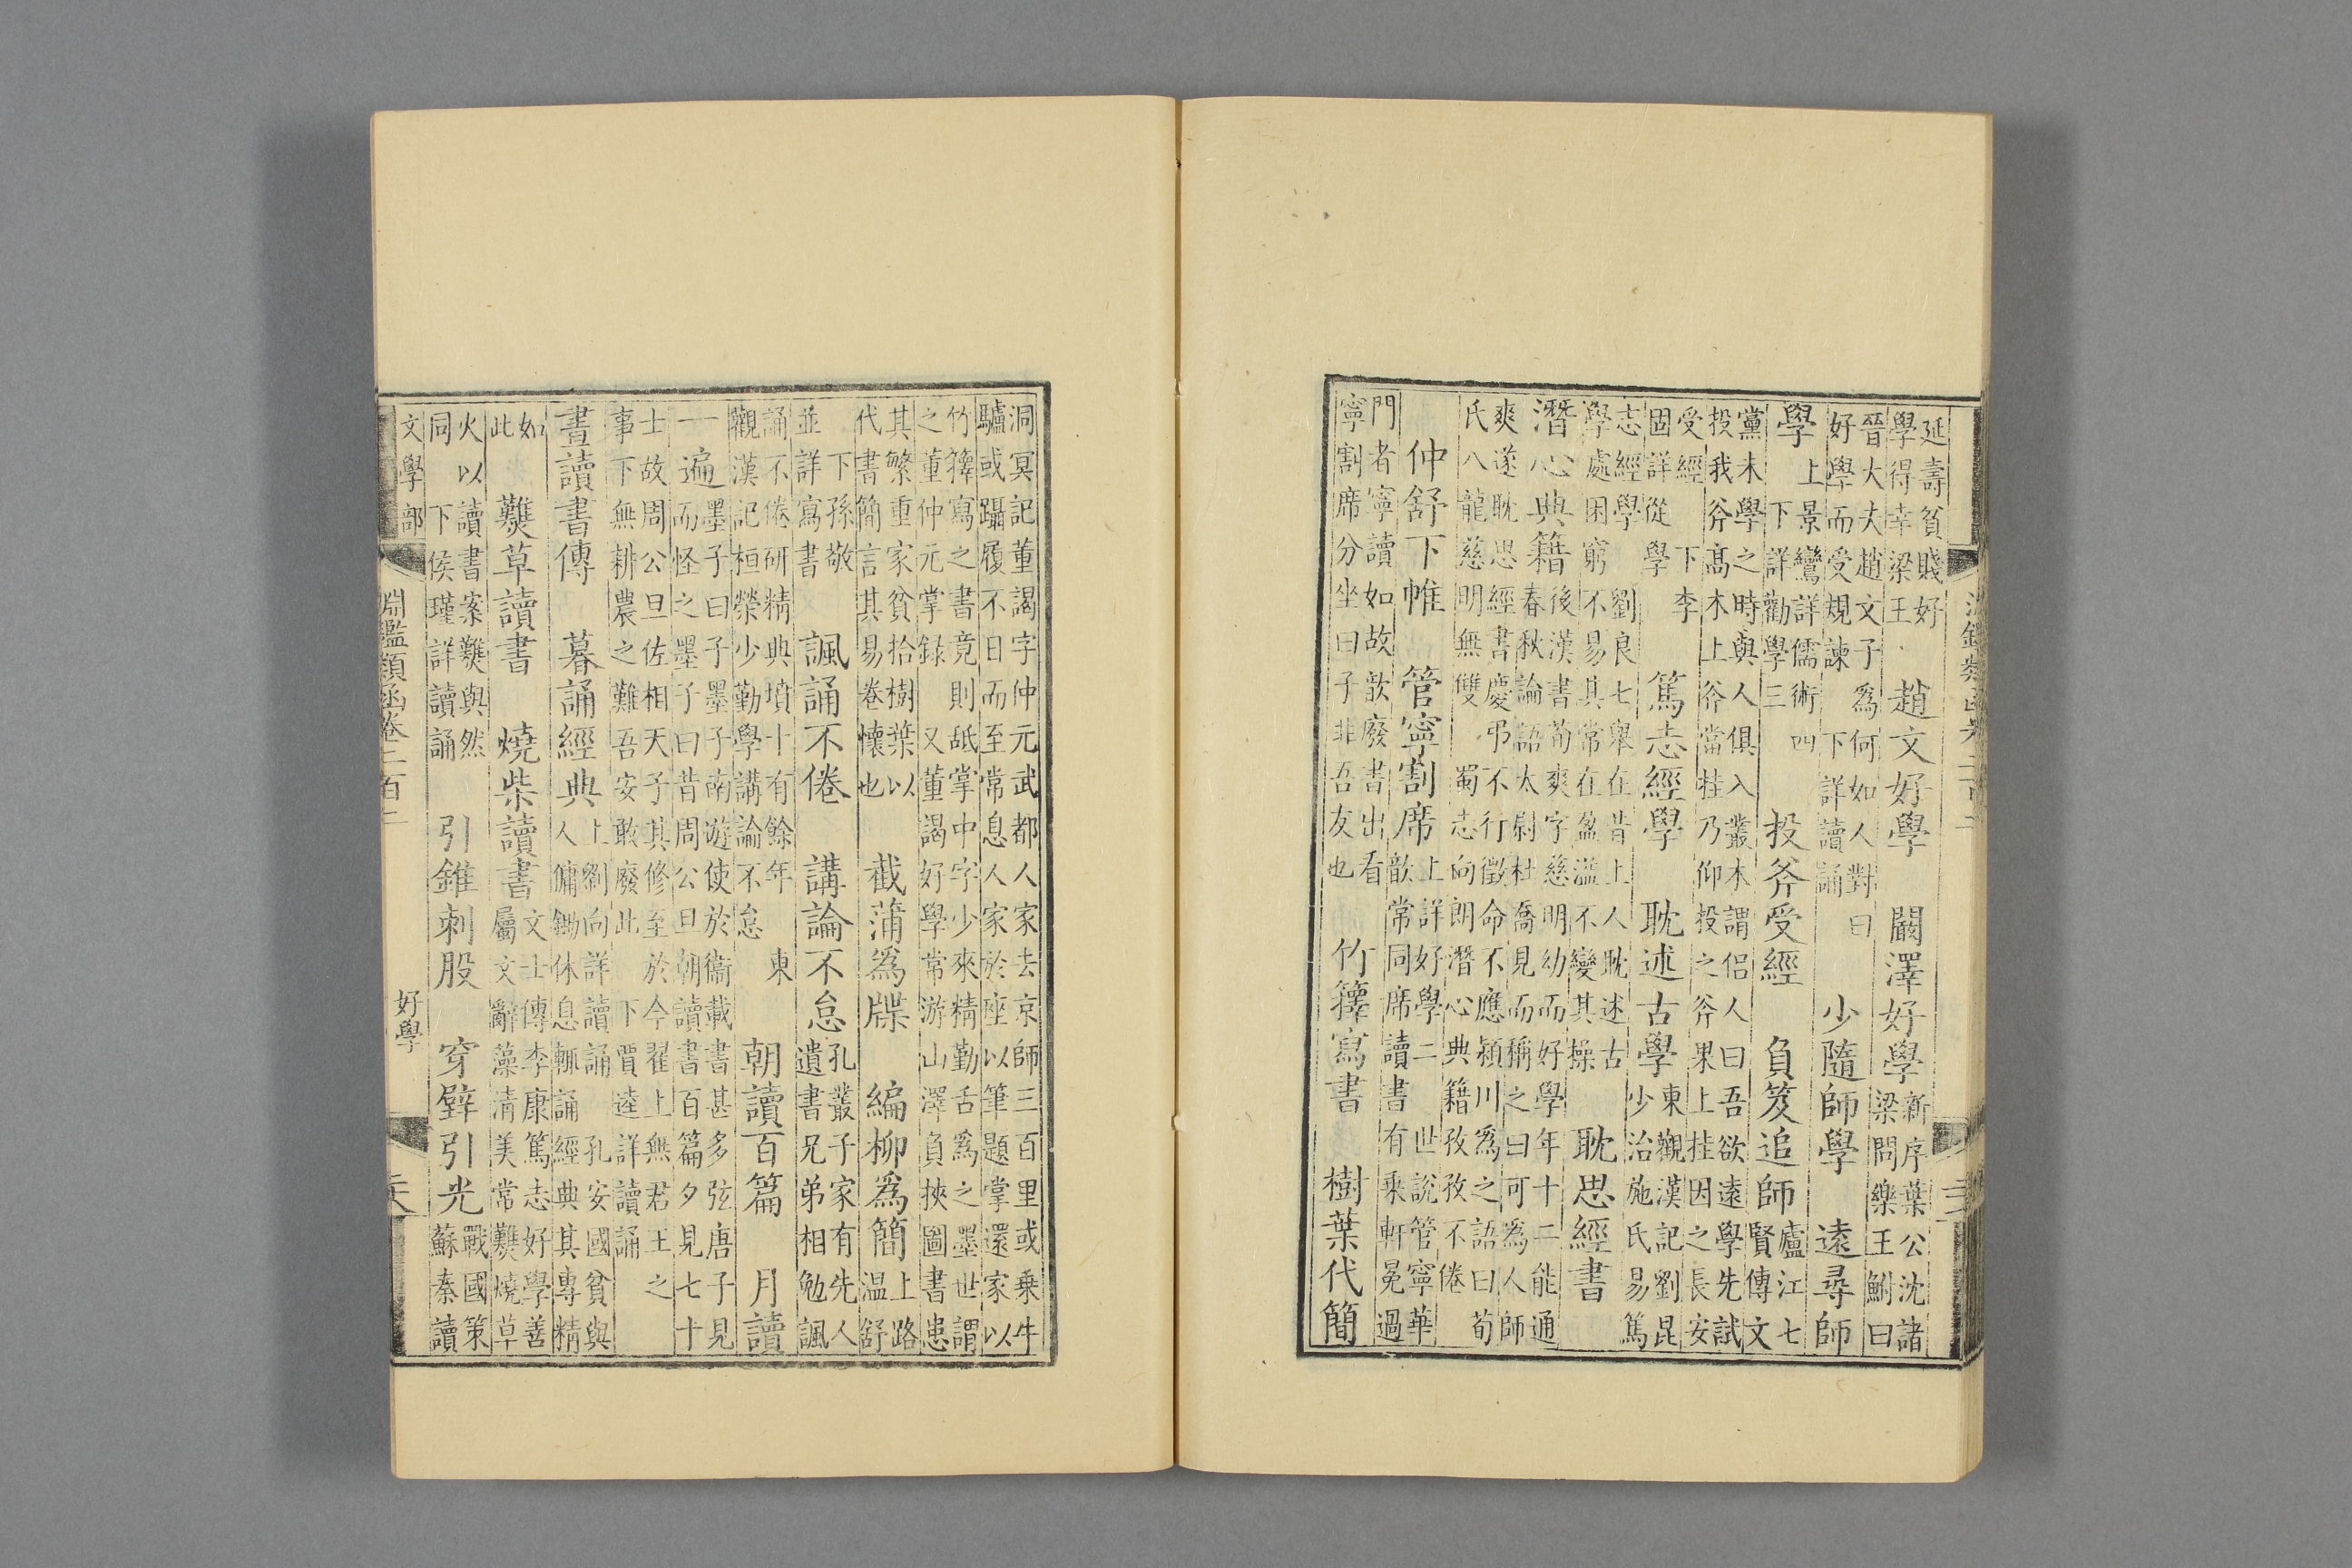 延壽貧賤好學得幸梁王 趙文好學 闞澤好學 新序葉公沈諸梁問樂王鮒曰
晉大夫趙文子為何如人對曰好學而受規諫 下詳讀誦 少隨師學 遠尋師
學 上景鸞詳儒術四下詳勸學三 投斧受經 負笈追師 廬江七賢傳文
黨未學之時與人俱入叢木謂侶人曰吾欲遠學先試投我斧高木上斧當挂乃仰投之斧果上挂因之長安
受經 下李固詳從學 篤志經學 耽述古學 東觀漢記劉昆少治施氏易篤
志經學 劉良七舉在昔上人耽述古學處困窮不易其常在盈溢不變其操 耽思經書
潛心典籍 後漢書荀爽字慈明幼而好學年十二能通春秋論語太尉杜喬見而稱之曰可為人師
爽遂耽思經書慶弔不行徵命不應潁川為之語曰荀氏八龍慈明無雙 蜀志向朗潛心典籍孜孜不倦
仲舒下帷 管寧割席 上詳好學二 世說管寧華歆常同席讀書有乘軒冕過
門者寧讀如故歆廢書出看寧割席分坐曰子非吾友也 竹籜寫書 樹葉代簡
洞冥記董謁字仲元武都人家去京師三百里或乘牛驢或躡履不日而至常息人家於座以筆題掌還家以
竹籜寫之書竟則舐掌中字少來精勤舌為之墨世謂之董仲元掌錄 又董謁好學常游山澤負挾圖書患
其繁重家貧拾樹葉以代書簡言其易卷懷也 截蒲為牒 編柳為簡 上路溫舒
下孫敬並詳寫書 諷誦不倦 講論不怠 孔叢子家有先人遺書兄弟相勉諷
誦不倦研精典墳十有餘年 東觀漢記桓榮少勤學講論不怠 朝讀百篇 月讀
一遍 墨子曰子墨子南遊使於衛載書甚多弦唐子見而怪之墨子曰昔周公旦朝讀書百篇夕見七十
士故周公旦佐相天子其修至於今翟上無君王之事下無耕農之難吾安敢廢此 下賈逵詳讀誦
晝讀書傳 暮誦經典 上劉向詳讀誦 孔安國貧與人傭鋤休息輒誦經典其專精
如此 爇草讀書 燒柴讀書 文士傳李康篤志好學善屬文辭藻清美常爇燒草
火以讀書案爇與然同 下侯瑾詳讀誦 引錐刺股 穿壁引光 戰國策蘇秦讀
文學部 淵鑑類函卷二百二 好學